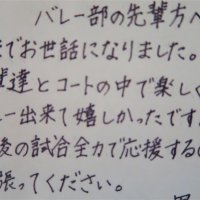 バレー部の先輩方へ
でお世話になりました。
輩達とコートの中で楽しく
ー出来て嬉しかったです
後の試合全力で応援する
張ってください。